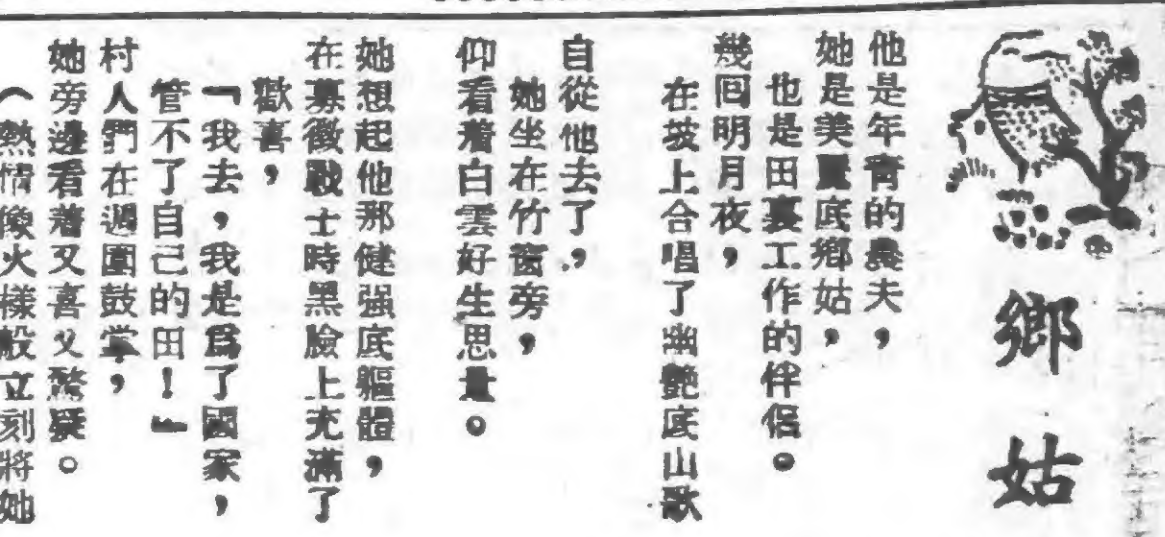 鄉姑
他是年青的農夫，
她是美麗底鄉姑，
也是田裏工作的伴侶。
幾回明月夜，
在坡上合唱了幽艷底山歌
自從他去了，
她坐在竹窗旁，
仰看着白雲好生思量。
她想起他那健强底軀體，
在募徵戰士時黑臉上充滿了
歡喜，
「我去，我是爲了國家，
管不了自己的田！」
村人們在週圍鼓掌，
她旁邊看着又喜又驚疑。
（熱情像火樣般立刻將她